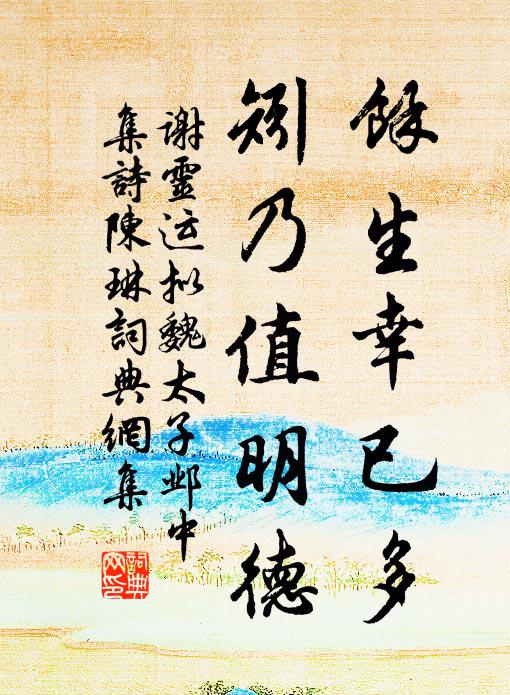 餘生幸已多
矧乃值明德
謝靈运拟魏太子邺中
集詩陳琳詞典網集
詞典